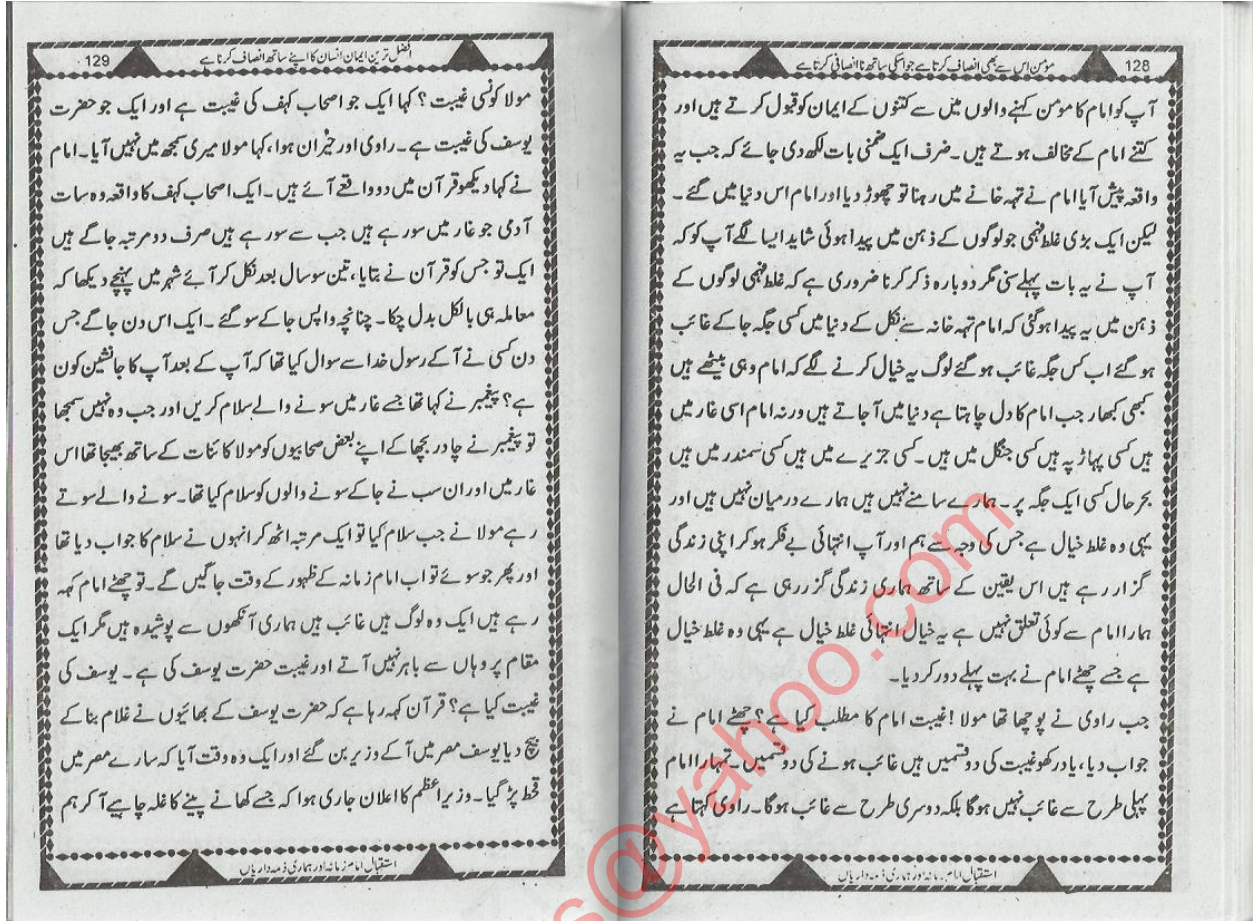 128
مؤمن اس سے بھی انصاف کرتا ہے جو اسکی ساتھ نا انصافی کرتا ہے
آپ کو امام کا مؤمن کہنے والوں میں سے کتنوں کے ایمان کو قبول کرتے ہیں اور
کتنے امام کے مخالف ہوتے ہیں۔ صرف ایک ضمنی بات لکھ دی جائے کہ جب یہ
واقعہ پیش آیا امام نے تہہ خانے میں رہنا تو چھوڑ دیا اور امام اس دنیا میں گئے۔
لیکن ایک بڑی غلط فہمی جو لوگوں کے ذہن میں پیدا ہوئی شاید ایسا لگے آپ کو کہ
آپ نے یہ بات پہلے سنی مگر دوبارہ ذکر کرنا ضروری ہے کہ غلط فہمی لوگوں کے
ذہن میں یہ پیدا ہوگئی کہ امام تہہ خانہ سے نکل کے دنیا میں کسی جگہ جا کے غائب
ہو گئے اب کس جگہ غائب ہو گئے لوگ یہ خیال کرنے لگے کہ امام وہی بیٹھے ہیں
کبھی کبھار جب امام کا دل چاہتا ہے دنیا میں آجاتے ہیں ورنہ امام اسی غار میں
ہیں کسی پہاڑ پہ ہیں کسی جنگل میں ہیں۔ کسی جزیرے میں ہیں کسی سمندر میں ہیں
بحر حال کسی ایک جگہ پر۔ ہمارے سامنے نہیں ہیں ہمارے درمیان نہیں ہیں اور
یہی وہ غلط خیال ہے جس کی وجہ سے ہم اور آپ انتہائی بے فکر ہو کر اپنی زندگی
گزار رہے ہیں اس یقین کے ساتھ ہماری زندگی گزر رہی ہے کہ فی الحال
ہمارا امام سے کوئی تعلق نہیں ہے یہ خیال انتہائی غلط خیال ہے یہی وہ غلط خیال
ہے جسے چھٹے امام نے بہت پہلے دور کر دیا۔
جب راوی نے پوچھا تھا مولا! غیبت امام کا مطلب کیا ہے؟ چھٹے امام نے
جواب دیا، یاد رکھو غیبت کی دو قسمیں ہیں غائب ہونے کی دو قسمیں۔ تمہارا امام
پہلی طرح سے غائب نہیں ہوگا بلکہ دوسری طرح سے غائب ہوگا۔ راوی کہتا ہے
استقبال امام زمانہ اور ہماری ذمہ داریاں
129
افضل ترین ایمان انسان کا اپنے ساتھ انصاف کرنا ہے
مولا کونسی غیبت؟ کہا ایک جو اصحاب کہف کی غیبت ہے اور ایک جو حضرت
یوسف کی غیبت ہے۔ راوی اور حیران ہوا، کہا مولا میری سمجھ میں نہیں آیا۔ امام
نے کہا دیکھو قرآن میں دو واقعے آئے ہیں۔ ایک اصحاب کہف کا واقعہ وہ سات
آدمی جو غار میں سو رہے ہیں جب سے سو رہے ہیں صرف دو مرتبہ جاگے ہیں
ایک تو جس کو قرآن نے بتایا، تین سو سال بعد نکل کر آئے شہر میں پہنچے دیکھا کہ
معاملہ ہی بالکل بدل چکا۔ چنانچہ واپس جا کے سو گئے۔ ایک اس دن جاگے جس
دن کسی نے آکے رسول خدا سے سوال کیا تھا کہ آپ کے بعد آپ کا جانشین کون
ہے؟ پیغمبر نے کہا تھا جسے غار میں سونے والے سلام کریں اور جب وہ نہیں سمجھا
تو پیغمبر نے چادر بچھا کے اپنے بعض صحابیوں کو مولا کائنات کے ساتھ بھیجا تھا اس
غار میں اور ان سب نے جا کے سونے والوں کو سلام کیا تھا۔ سونے والے سوتے
رہے مولا نے جب سلام کیا تو ایک مرتبہ اٹھ کر انہوں نے سلام کا جواب دیا تھا
اور پھر جو سوئے تو اب امام زمانہ کے ظہور کے وقت جاگیں گے۔ تو چھٹے امام کہہ
رہے ہیں ایک وہ لوگ ہیں غائب ہیں ہماری آنکھوں سے پوشیدہ ہیں مگر ایک
مقام پر وہاں سے باہر نہیں آتے اور غیبت حضرت یوسف کی ہے۔ یوسف کی
غیبت کیا ہے؟ قرآن کہہ رہا ہے کہ حضرت یوسف کے بھائیوں نے غلام بنا کے
بیچ دیا یوسف مصر میں آکے وزیر بن گئے اور ایک وہ وقت آیا کہ سارے مصر میں
قحط پڑ گیا۔ وزیر اعظم کا اعلان جاری ہوا کہ جسے کھانے پینے کا غلہ چاہیے آ کر ہم
استقبال امام زمانہ اور ہماری ذمہ داریاں
s@yahoo.com